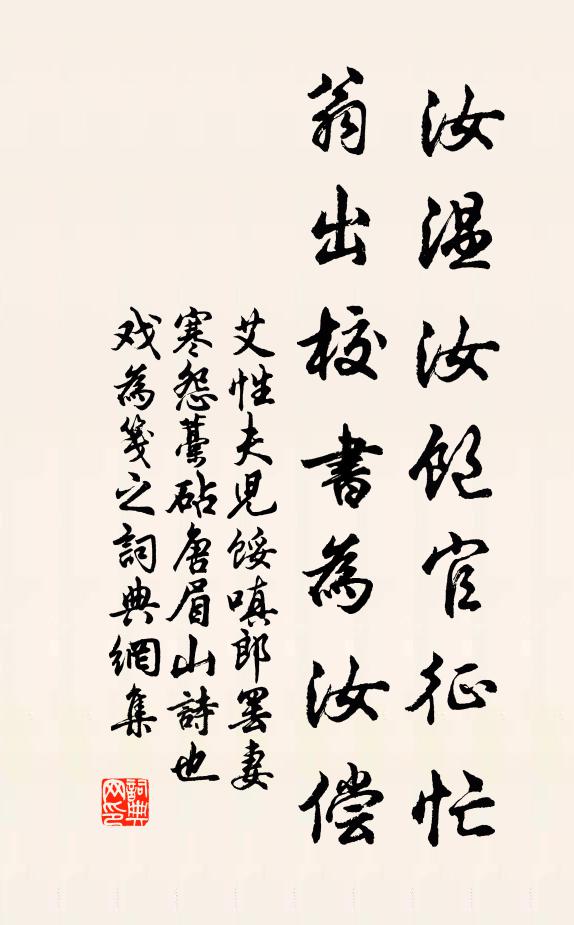 汝温汝飽官征忙
翁出校書為汝偿
艾性夫兒餒嗔郎罢妻
寒怨藁砧唐眉山詩也
戏為箋之詞典網集
詞典
网印